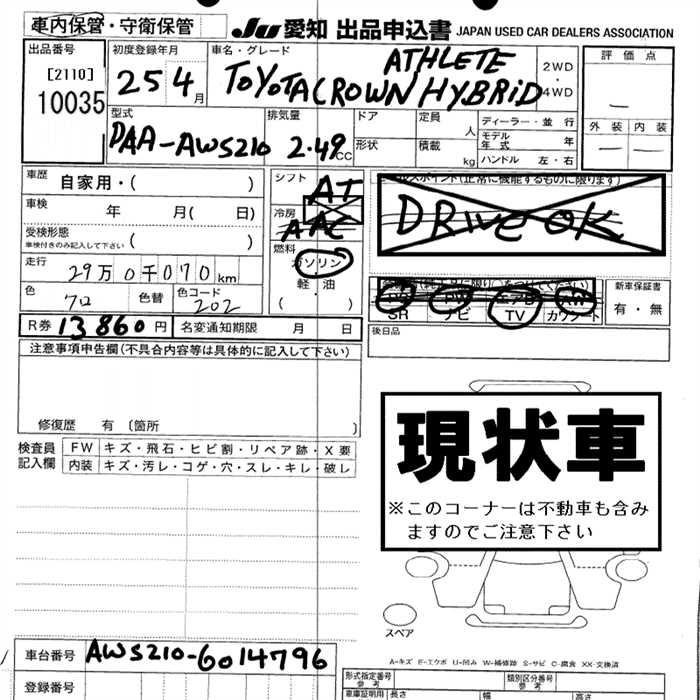 車内保管・守衛保管
JU 愛知 出品申込書 JAPAN USED CAR DEALERS ASSOCIATION
出品番号
[2110]
10035
初度登録年月
25 4月
車名・グレード
ATHLETE
TOYOTA CROWN HYBRID
2WD
・
4WD
評価点
―
外装 内装
― ―
型式
DAA-AWS210
排気量
2.49cc
ドア
形状
定員 人
積載 kg
ディーラー・並行
モデル年式 年
ハンドル 左・右
車歴 自家用・( )
車検 年 月( 日)
受検形態
車検付きのみ記入して下さい ( )
走行 29万0千070km
色 クロ 色替 色コード 202
R券 13860円 名変通知期限 月 日
シフト AT
冷房 AAC
燃料
ガソリン
軽・油
( ・ )
スポイント(正常に機能するものに限ります)
DRIVE OK
PS PW エアB AW
SR ナビ TV カワシート
新車保証書
有・無
後日品
注意事項申告欄(不具合内容等は具体的に記入して下さい)
修復歴 有 〔箇所 〕
検査員記入欄
FW キズ・飛石・ヒビ割・リペア跡・X要
内装 キズ・汚レ・コゲ・穴・スレ・キレ・破レ
現状車
※このコーナーは不動車も含み
ますのでご注意下さい
スペア
A-キズ E-エクボ U-凹み W-補修跡 S-サビ C-腐食 XX-交換済
車台番号 AWS210-6014796
登録番号
形式指定番号
参考
類別区分番号
参考
車庫証明用 長さ 幅 高さ